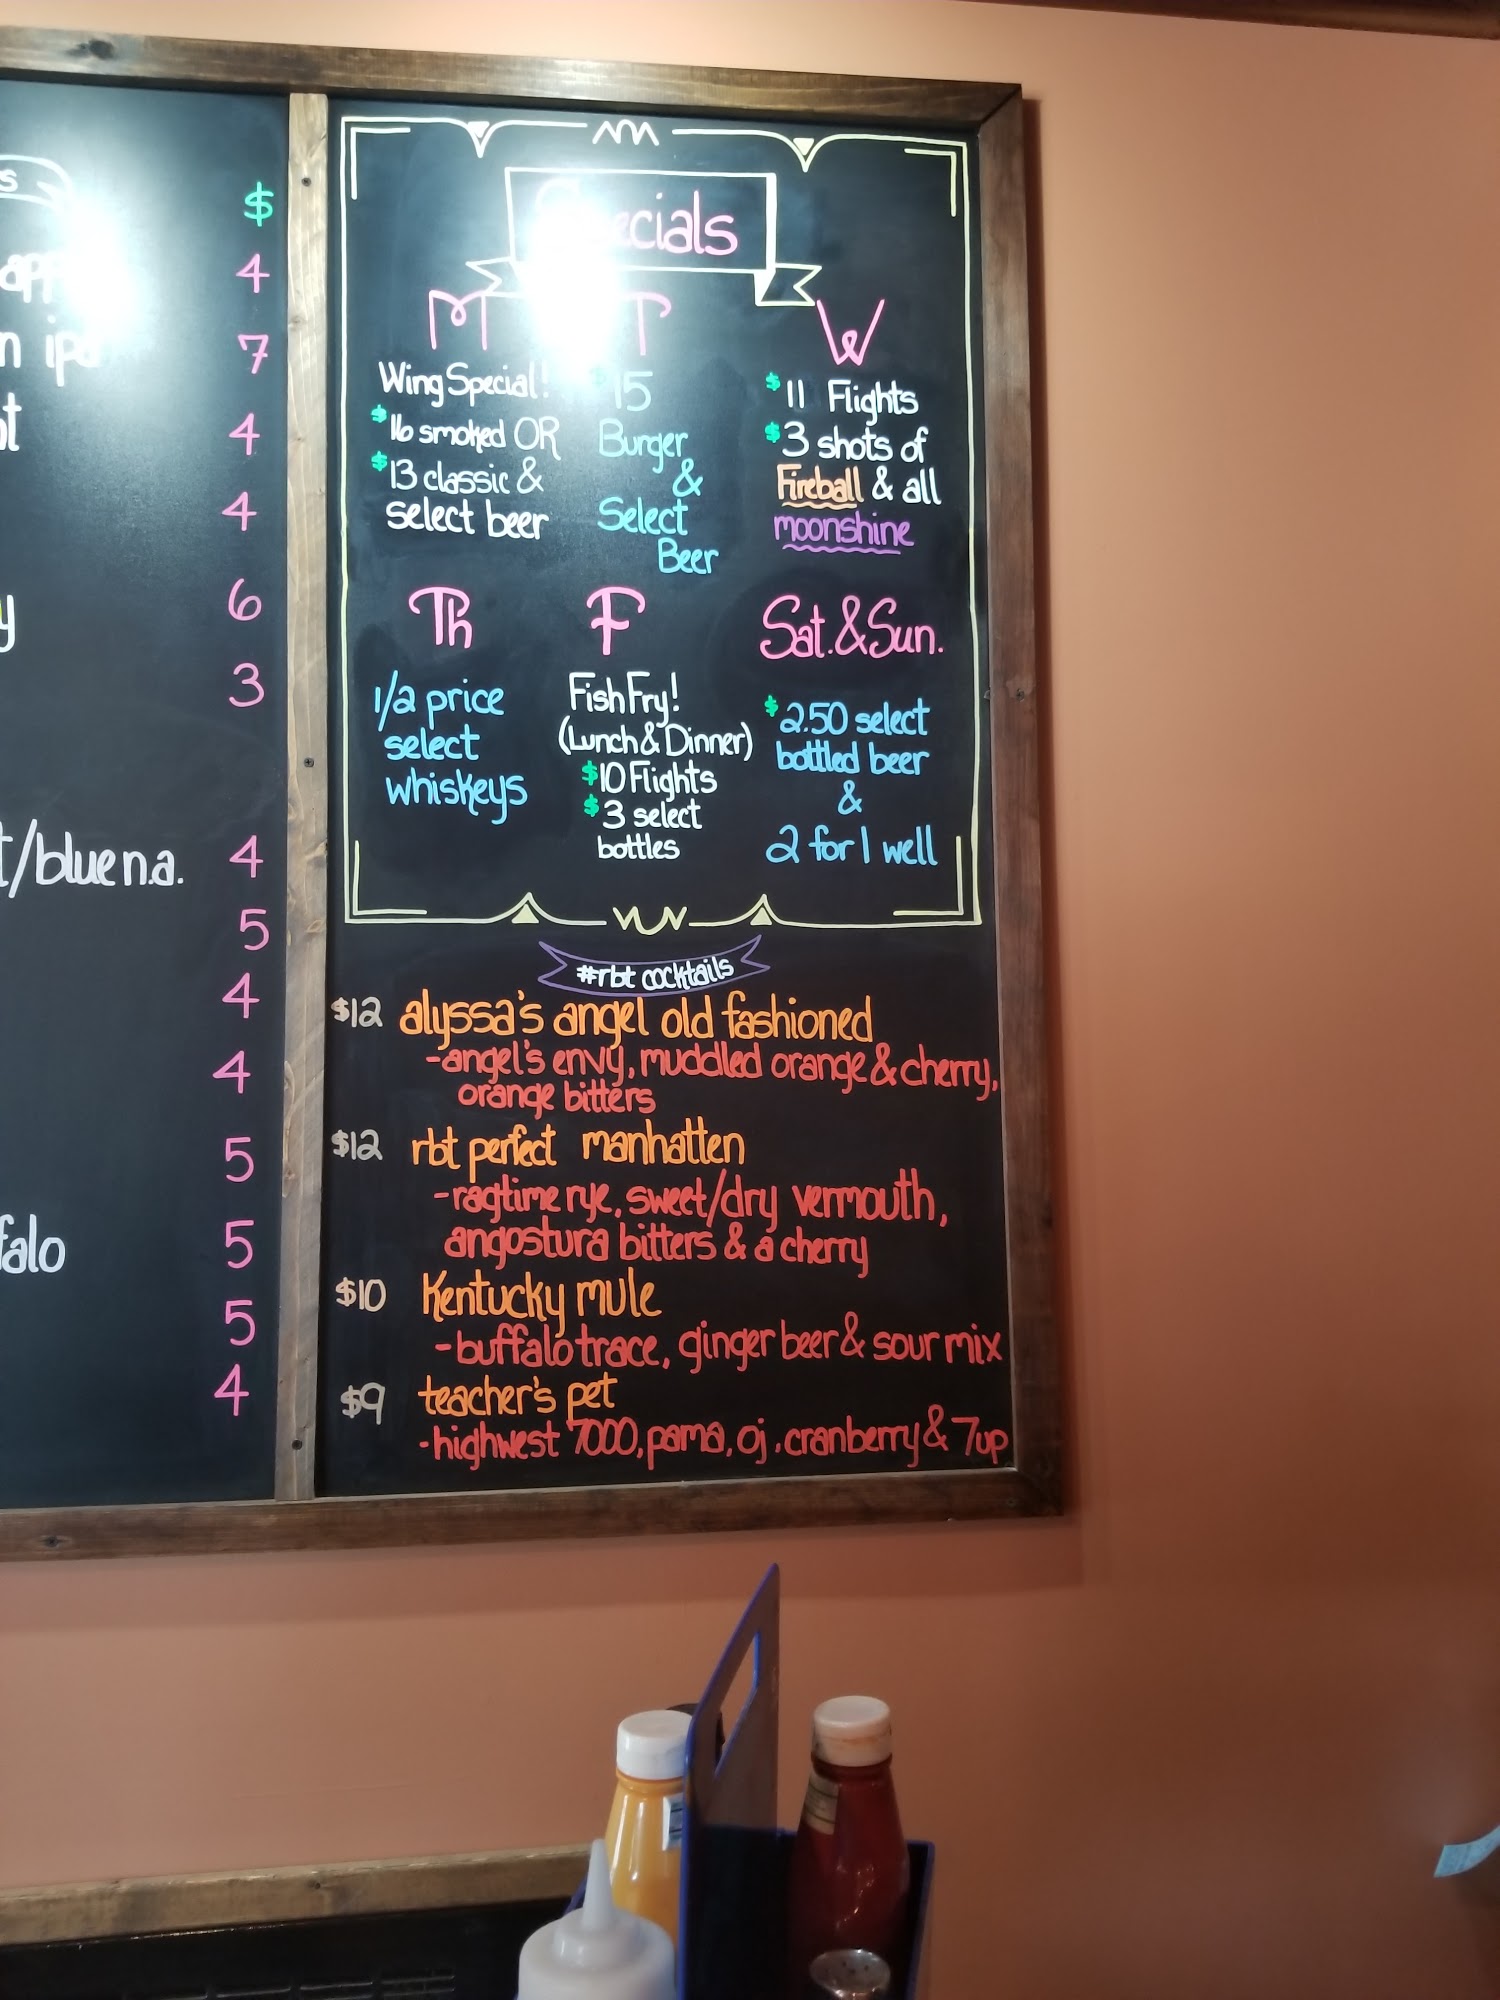 $
4
7
n ipa
4
4
6
y
3
t/blue n.a.
4
5
4
4
5
falo
5
5
4
Specials
M
Wing Special!
$16 smoked OR
$13 classic &
select beer
T
$15
Burger
&
Select
Beer
W
$11 Flights
$3 shots of
Fireball & all
moonshine
Th
1/2 price
select
whiskeys
F
Fish Fry!
(Lunch & Dinner)
$10 Flights
$3 select
bottles
Sat. & Sun.
$2.50 select
bottled beer
&
2 for 1 well
#rbt cocktails
$12 alyssa's angel old fashioned
-angel's envy, muddled orange & cherry,
orange bitters
$12 rbt perfect manhatten
-ragtime rye, sweet/dry vermouth,
angostura bitters & a cherry
$10 Kentucky mule
-buffalo trace, ginger beer & sour mix
$9 teacher's pet
-highwest 7000, pama, oj, cranberry & 7up